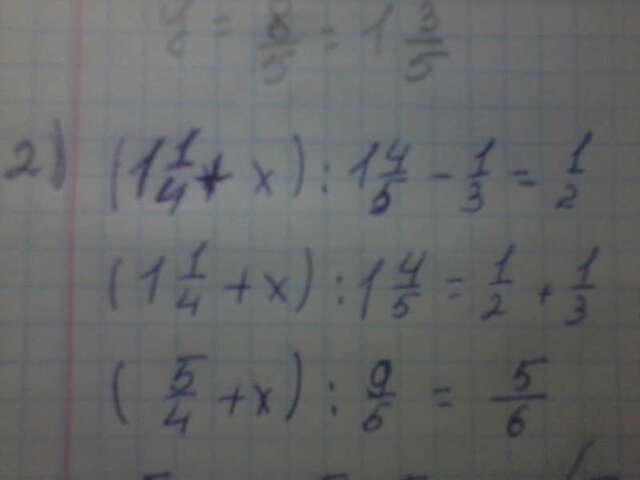 = 8/5 = 1 3/5
2) (1 1/4 + x) : 1 4/5 - 1/3 = 1/2
(1 1/4 + x) : 1 4/5 = 1/2 + 1/3
(5/4 + x) : 9/5 = 5/6